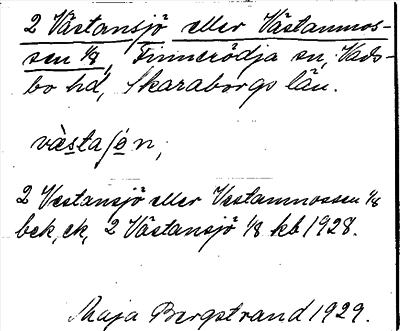 2 Västansjö eller Västanmos-
sen 1/8, Finnerödja sn, Vads-
bo hd, Skaraborgs län.
västaʃö́n,
2 Vestansjö eller Vestanmossen 1/8
bek, ek, 2 Västansjö 1/8 kb 1928.
Maja Bergstrand 1929.